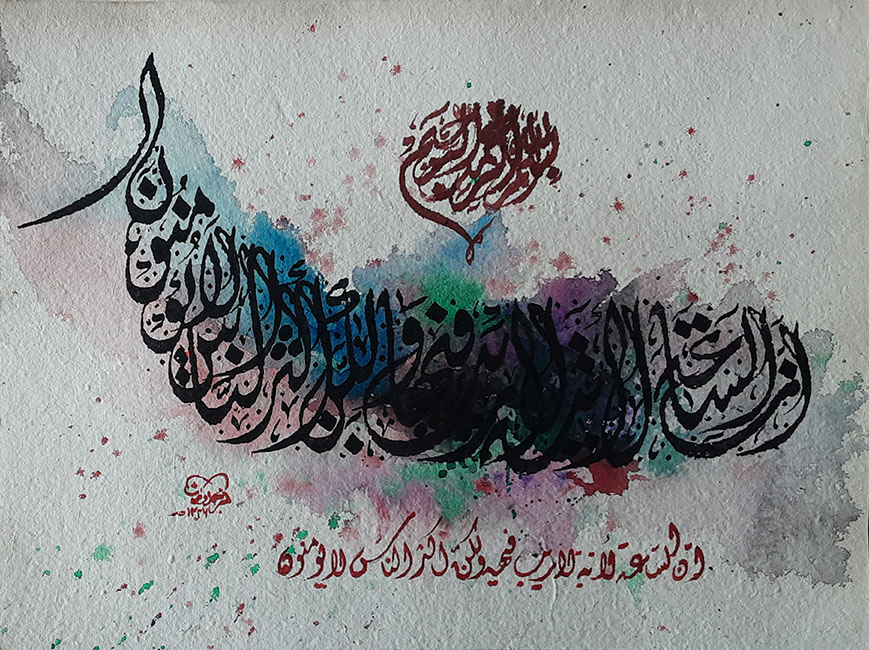 بسم الله الرحمن الرحيم
إن الساعة لآتية لا ريب فيها ولكن أكثر الناس لا يؤمنون
انّ الساعة لأتية لا ريب فيها ولكنّ اكثر الناس لا يومنون